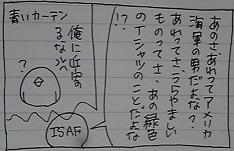 あのさ、あれってアメリカ
海軍の男だよな?
あれってさ、うらやましい
ものってさ、あの緑色
のTシャツのことだよな
!?
青いカーテン
俺に近寄
るなバ
?
ISAF